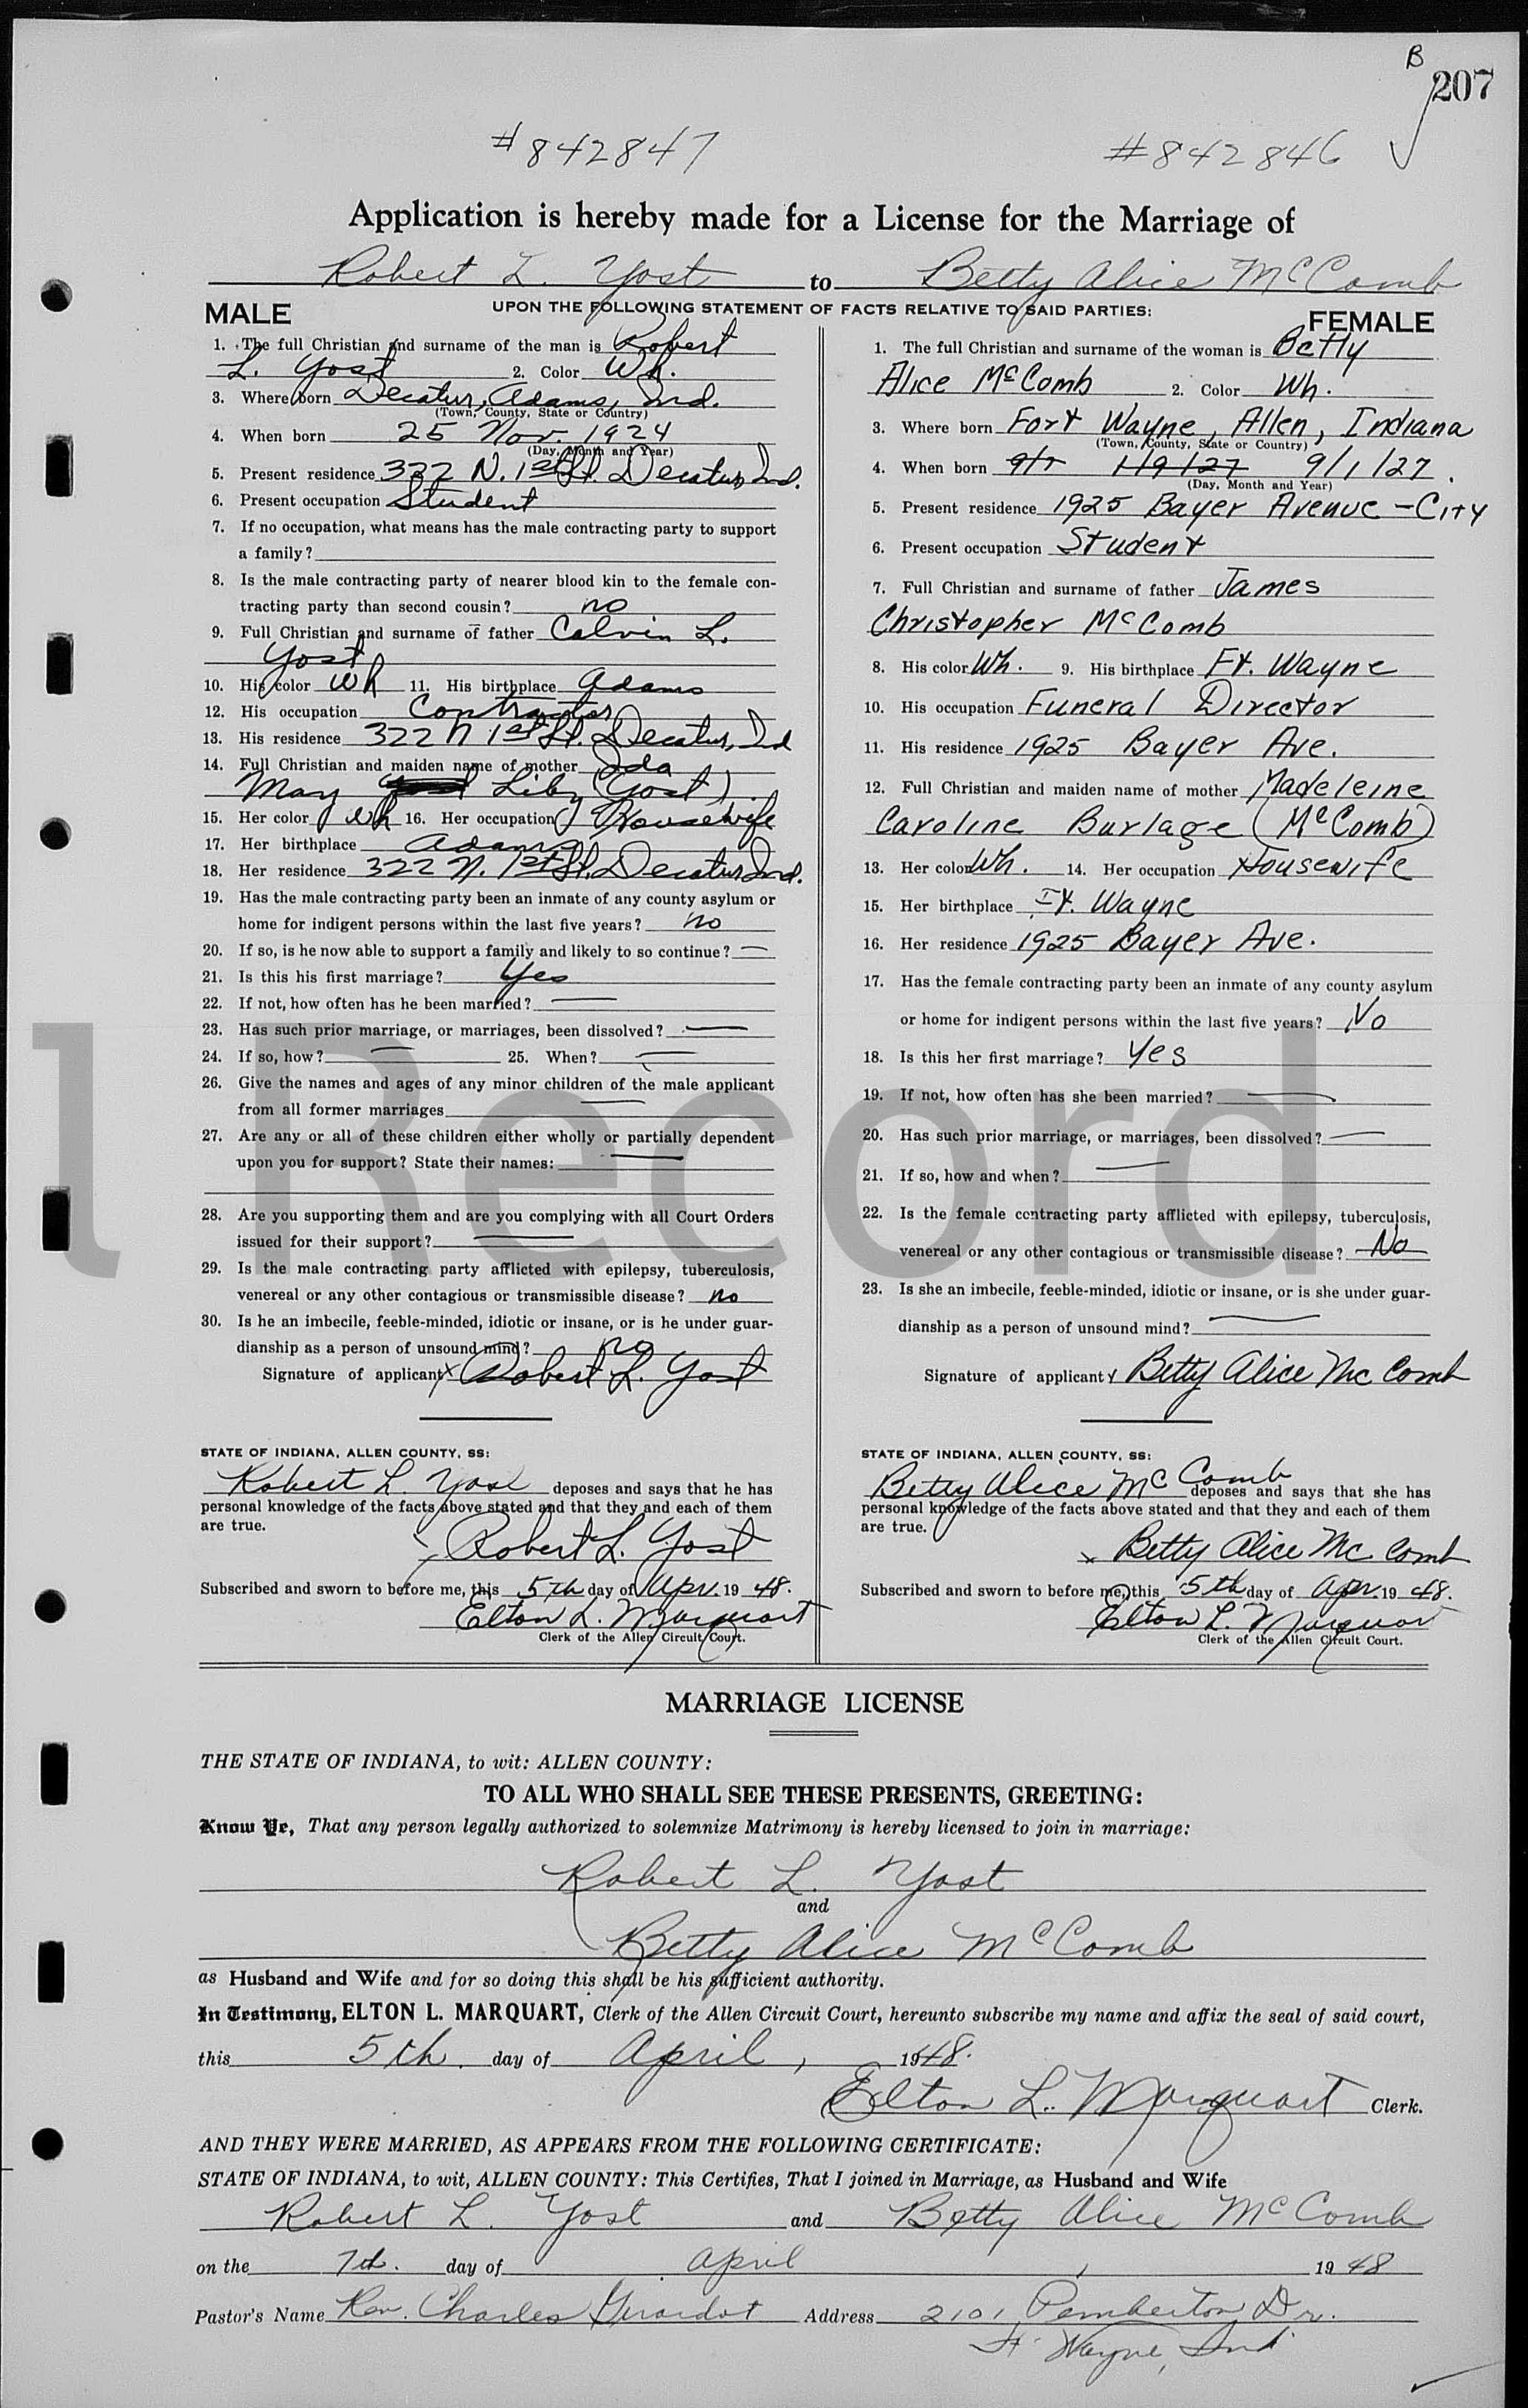 B
207
#842847 #842846
Application is hereby made for a License for the Marriage of
Robert L. Yost to Betty Alice McComb
UPON THE FOLLOWING STATEMENT OF FACTS RELATIVE TO SAID PARTIES:
MALE
1. The full Christian and surname of the man is Robert
L. Yost 2. Color Wh.
3. Where born Decatur, Adams, Ind.
(Town, County, State or Country)
4. When born 25 Nov. 1924
(Day, Month and Year)
5. Present residence 322 N. 1st St. Decatur, Ind.
6. Present occupation Student
7. If no occupation, what means has the male contracting party to support
a family?
8. Is the male contracting party of nearer blood kin to the female con-
tracting party than second cousin? no
9. Full Christian and surname of father Calvin L.
Yost
10. His color Wh 11. His birthplace Adams
12. His occupation Contractor
13. His residence 322 N 1st St. Decatur, Ind
14. Full Christian and maiden name of mother Ida
May Liby (Yost)
15. Her color Wh 16. Her occupation Housewife
17. Her birthplace Adams
18. Her residence 322 N. 1st St. Decatur Ind.
19. Has the male contracting party been an inmate of any county asylum or
home for indigent persons within the last five years? no
20. If so, is he now able to support a family and likely to so continue? —
21. Is this his first marriage? Yes
22. If not, how often has he been married? —
23. Has such prior marriage, or marriages, been dissolved? —
24. If so, how? — 25. When? —
26. Give the names and ages of any minor children of the male applicant
from all former marriages —
27. Are any or all of these children either wholly or partially dependent
upon you for support? State their names: —
28. Are you supporting them and are you complying with all Court Orders
issued for their support? —
29. Is the male contracting party afflicted with epilepsy, tuberculosis,
venereal or any other contagious or transmissible disease? no
30. Is he an imbecile, feeble-minded, idiotic or insane, or is he under guar-
dianship as a person of unsound mind? no
Signature of applicant x Robert L. Yost
STATE OF INDIANA, ALLEN COUNTY, SS:
Robert L. Yost deposes and says that he has
personal knowledge of the facts above stated and that they and each of them
are true.
Robert L. Yost
Subscribed and sworn to before me, this 5th day of Apr. 1948.
Elton L. Marquart
Clerk of the Allen Circuit Court.
FEMALE
1. The full Christian and surname of the woman is Betty
Alice McComb 2. Color Wh.
3. Where born Fort Wayne, Allen, Indiana
(Town, County, State or Country)
4. When born 9/7 1/9/27 9/1/27.
(Day, Month and Year)
5. Present residence 1925 Bayer Avenue - City
6. Present occupation Student
7. Full Christian and surname of father James
Christopher McComb
8. His color Wh. 9. His birthplace Ft. Wayne
10. His occupation Funeral Director
11. His residence 1925 Bayer Ave.
12. Full Christian and maiden name of mother Madeleine
Caroline Burlage (McComb)
13. Her color Wh. 14. Her occupation Housewife
15. Her birthplace Ft. Wayne
16. Her residence 1925 Bayer Ave.
17. Has the female contracting party been an inmate of any county asylum
or home for indigent persons within the last five years? No
18. Is this her first marriage? Yes
19. If not, how often has she been married? —
20. Has such prior marriage, or marriages, been dissolved? —
21. If so, how and when? —
22. Is the female contracting party afflicted with epilepsy, tuberculosis,
venereal or any other contagious or transmissible disease? No
23. Is she an imbecile, feeble-minded, idiotic or insane, or is she under guar-
dianship as a person of unsound mind? —
Signature of applicant x Betty Alice McComb
STATE OF INDIANA, ALLEN COUNTY, SS:
Betty Alice McComb deposes and says that she has
personal knowledge of the facts above stated and that they and each of them
are true.
x Betty Alice McComb
Subscribed and sworn to before me, this 5th day of Apr. 1948.
Elton L. Marquart
Clerk of the Allen Circuit Court.
l Record
MARRIAGE LICENSE
THE STATE OF INDIANA, to wit: ALLEN COUNTY:
TO ALL WHO SHALL SEE THESE PRESENTS, GREETING:
Know Ye, That any person legally authorized to solemnize Matrimony is hereby licensed to join in marriage:
Robert L. Yost
and
Betty Alice McComb
as Husband and Wife and for so doing this shall be his sufficient authority.
In Testimony, ELTON L. MARQUART, Clerk of the Allen Circuit Court, hereunto subscribe my name and affix the seal of said court,
this 5th. day of April, 1948.
Elton L. Marquart Clerk.
AND THEY WERE MARRIED, AS APPEARS FROM THE FOLLOWING CERTIFICATE:
STATE OF INDIANA, to wit, ALLEN COUNTY: This Certifies, That I joined in Marriage, as Husband and Wife
Robert L. Yost and Betty Alice McComb
on the 7th. day of April, 1948
Pastor's Name Rev. Charles Girardot Address 2101 Pemberton Dr.
Ft. Wayne, Ind.